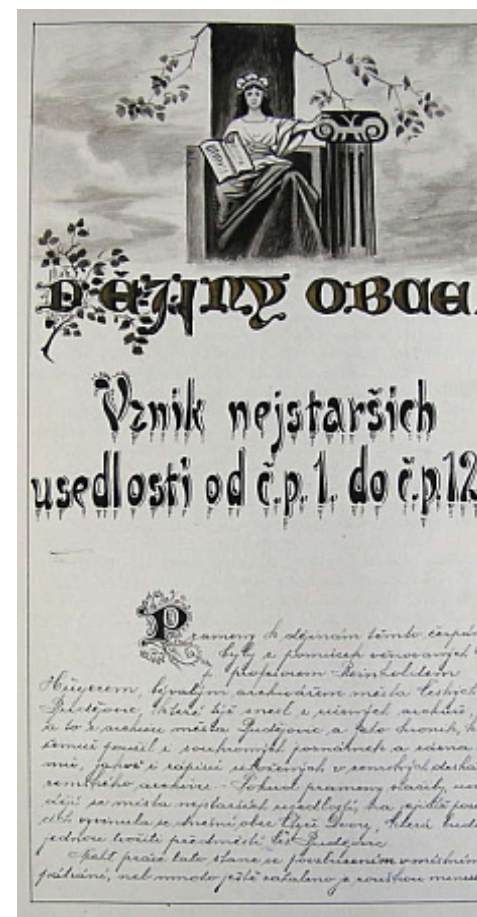 DĚJINY OBCE
Vznik nejstarších
usedlosti od č.p. 1. do č.p. 12
Prameny k dějinám těmto čerpán
byly z pomůcek věnovaných
p. profesorem Reinholdem
Huyerem, bývalým archivářem města Českých
Budějovic, které týž snesl z různých archivů,
a to z archivu města Budějovic a jeho kronik, k
čemuž použil i soukromých poznámek a
mě, jakož i zápisů uložených v zemských deskách
zemského archivu. - Pokud prameny stačily, uvá
dějí se místa nejstarších usedlostí, na jejichž
vyvinula se dnešní obec Čtyři Dvory, která bude
jednou tvořiti předměstí Čes. Budějovic
Nechť práce tato stane se povzbuzením v místním
pátrání, neb mnoho ještě zahaleno je rouškou